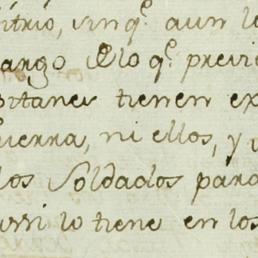 itrio, sin q.e aun l
argo Elo q.e previ
pitanes tienen ex
uerra, ni ellos, y
los Soldados para
urri lo tiene en los